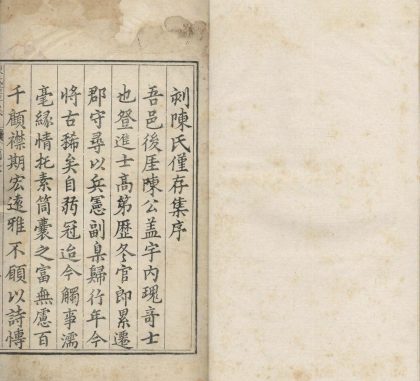 刻陳氏僅存集序
吾邑後厓陳公盖字内瑰奇士
也登進士高苐歴冬官郎累遷
郡守尋以兵憲副臬歸行年今
将古稀矣自弱冠迨今觸事濡
毫緣情托素筒囊之富無慮百
千顧襟期宏逺雅不願以詩傳